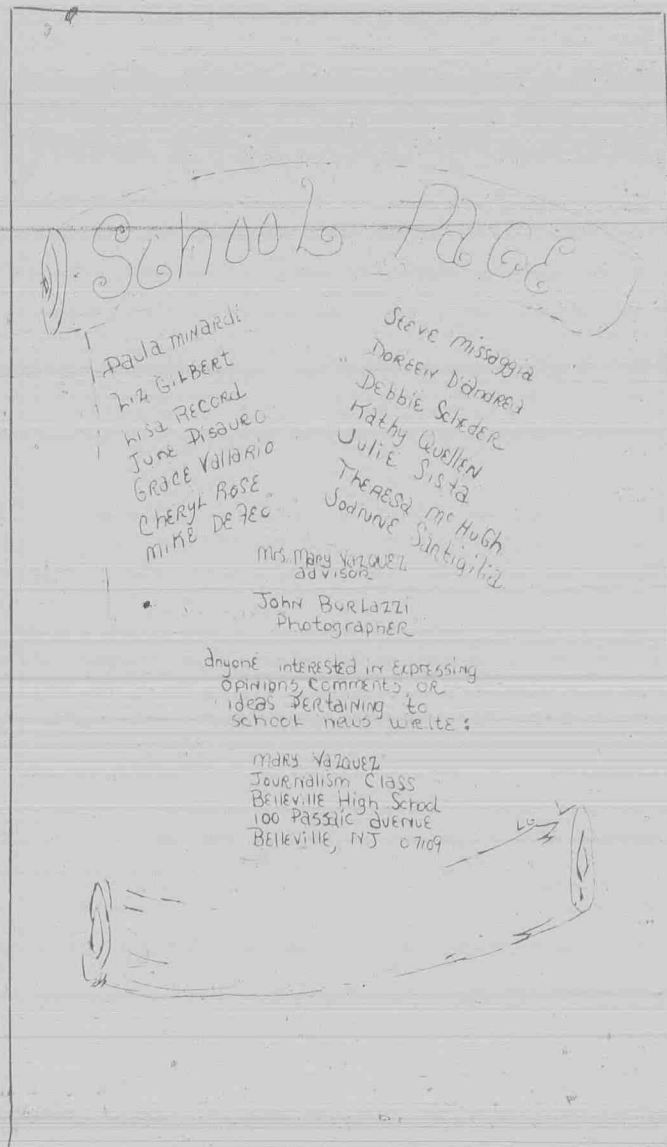 School Page
Paula Minardi
Liz Gilbert
Lisa Record
June Disauro
Grace Vallario
Cheryl Rose
Mike Defeo
Steve Missaggia
Doreen D'Andrea
Debbie Scheder
Kathy Quellen
Julie Sista
Theresa McHugh
Santigilia
Mrs. Mary Vazquez
advisor
John Burlazzi
Photographer
Anyone interested in expressing
opinions, comments, or
ideas pertaining to
school news write:
Mary Vazquez
Journalism Class
Belleville High School
100 Passaic Avenue
Belleville, NJ 07109